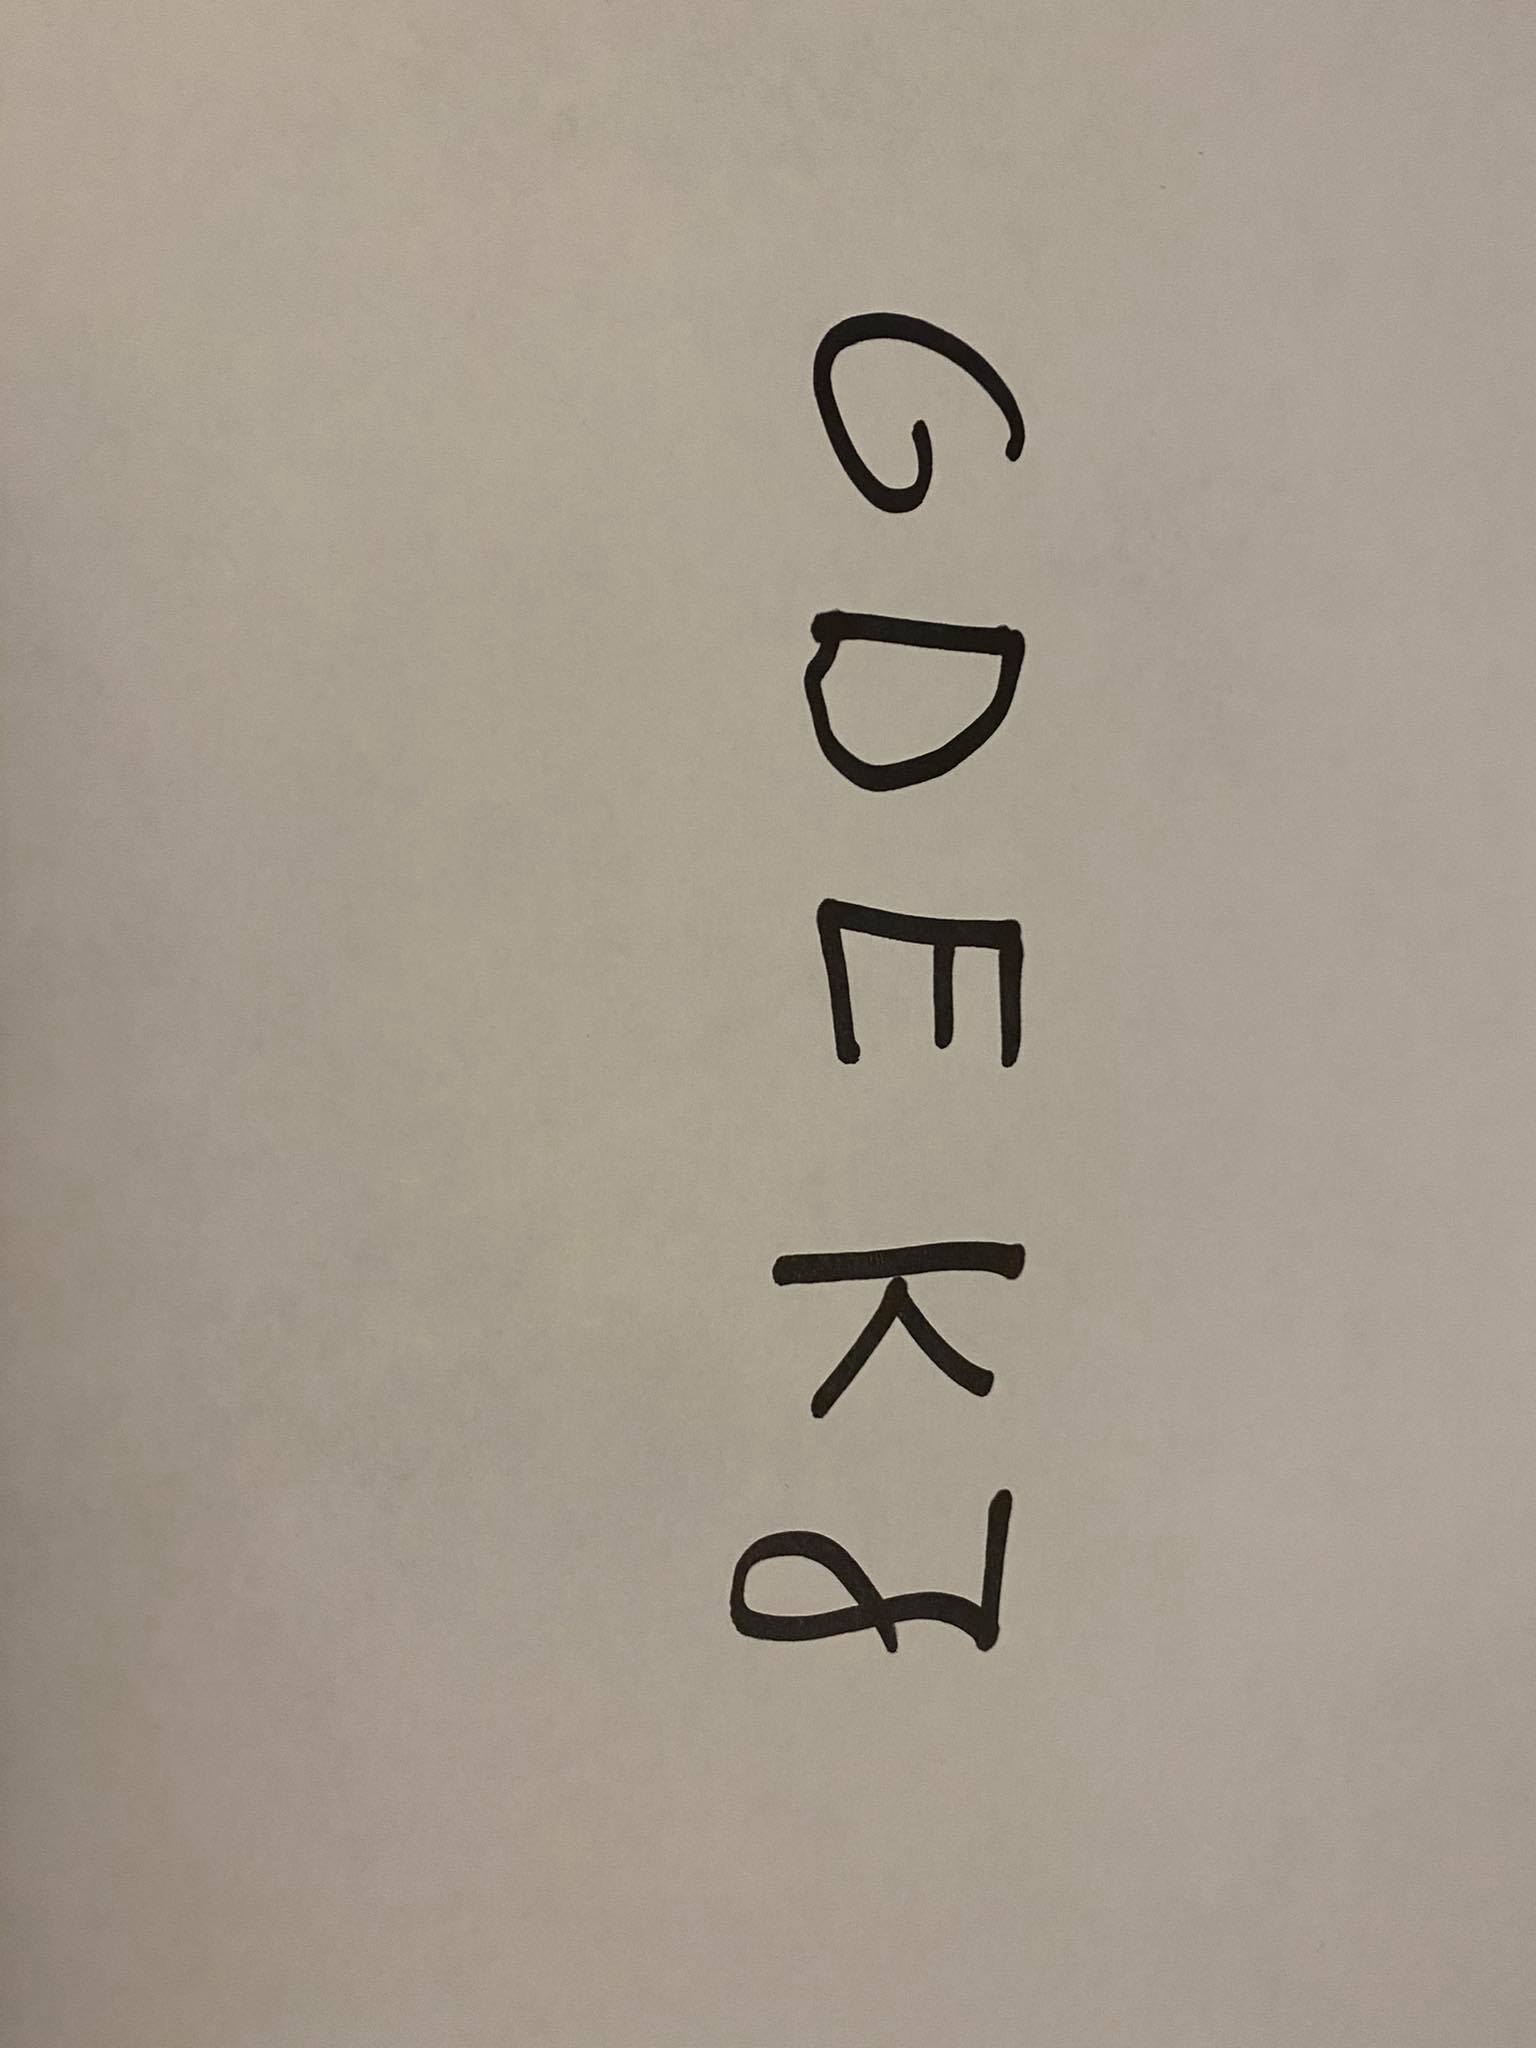 G D E K J